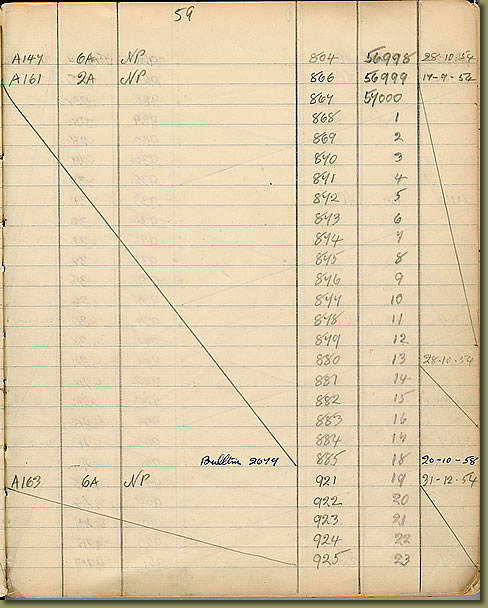 59
A147 6A NP 804 56998 28-10-54
A161 2A NP 866 56999 17-9-54
867 57000
868 1
869 2
870 3
871 4
872 5
873 6
874 7
875 8
876 9
877 10
878 11
879 12
880 13 28-10-54
881 14
882 15
883 16
884 17
885 18 20-10-58
A163 6A NP 921 19 31-12-54
922 20
923 21
924 22
925 23